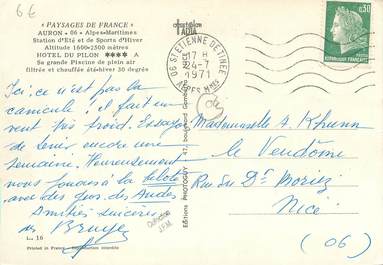 6€
« PAYSAGES DE FRANCE »
AURON - 06 - Alpes-Maritimes
Station d'Eté et de Sports d'Hiver
Altitude 1600-2500 mètres
HOTEL DU PILON **** A
Sa grande Piscine de plein air
(filtrée et chauffée été-hiver 30 degrés)
Ici ce n'est pas la
canicule ! il fait un
vent très froid. Essayons
de tenir encore une
semaine. Heureusement
nous jouons à la pelote
avec des gens des Andes
Amitiés sincères
des Bruyé
L. 16
Printed in France - Reproduction interdite
Editions PHOTOGUY - 47, boulevard Gambetta
Collection
J.F.M.
06 ST ETIENNE DE TINEE
17 H
24-7
1971
ALPES MMES
0,30
REPUBLIQUE FRANCAISE
Mademoiselle A
le Vendôme
Rue du Dr Moriez
Nice
(06)